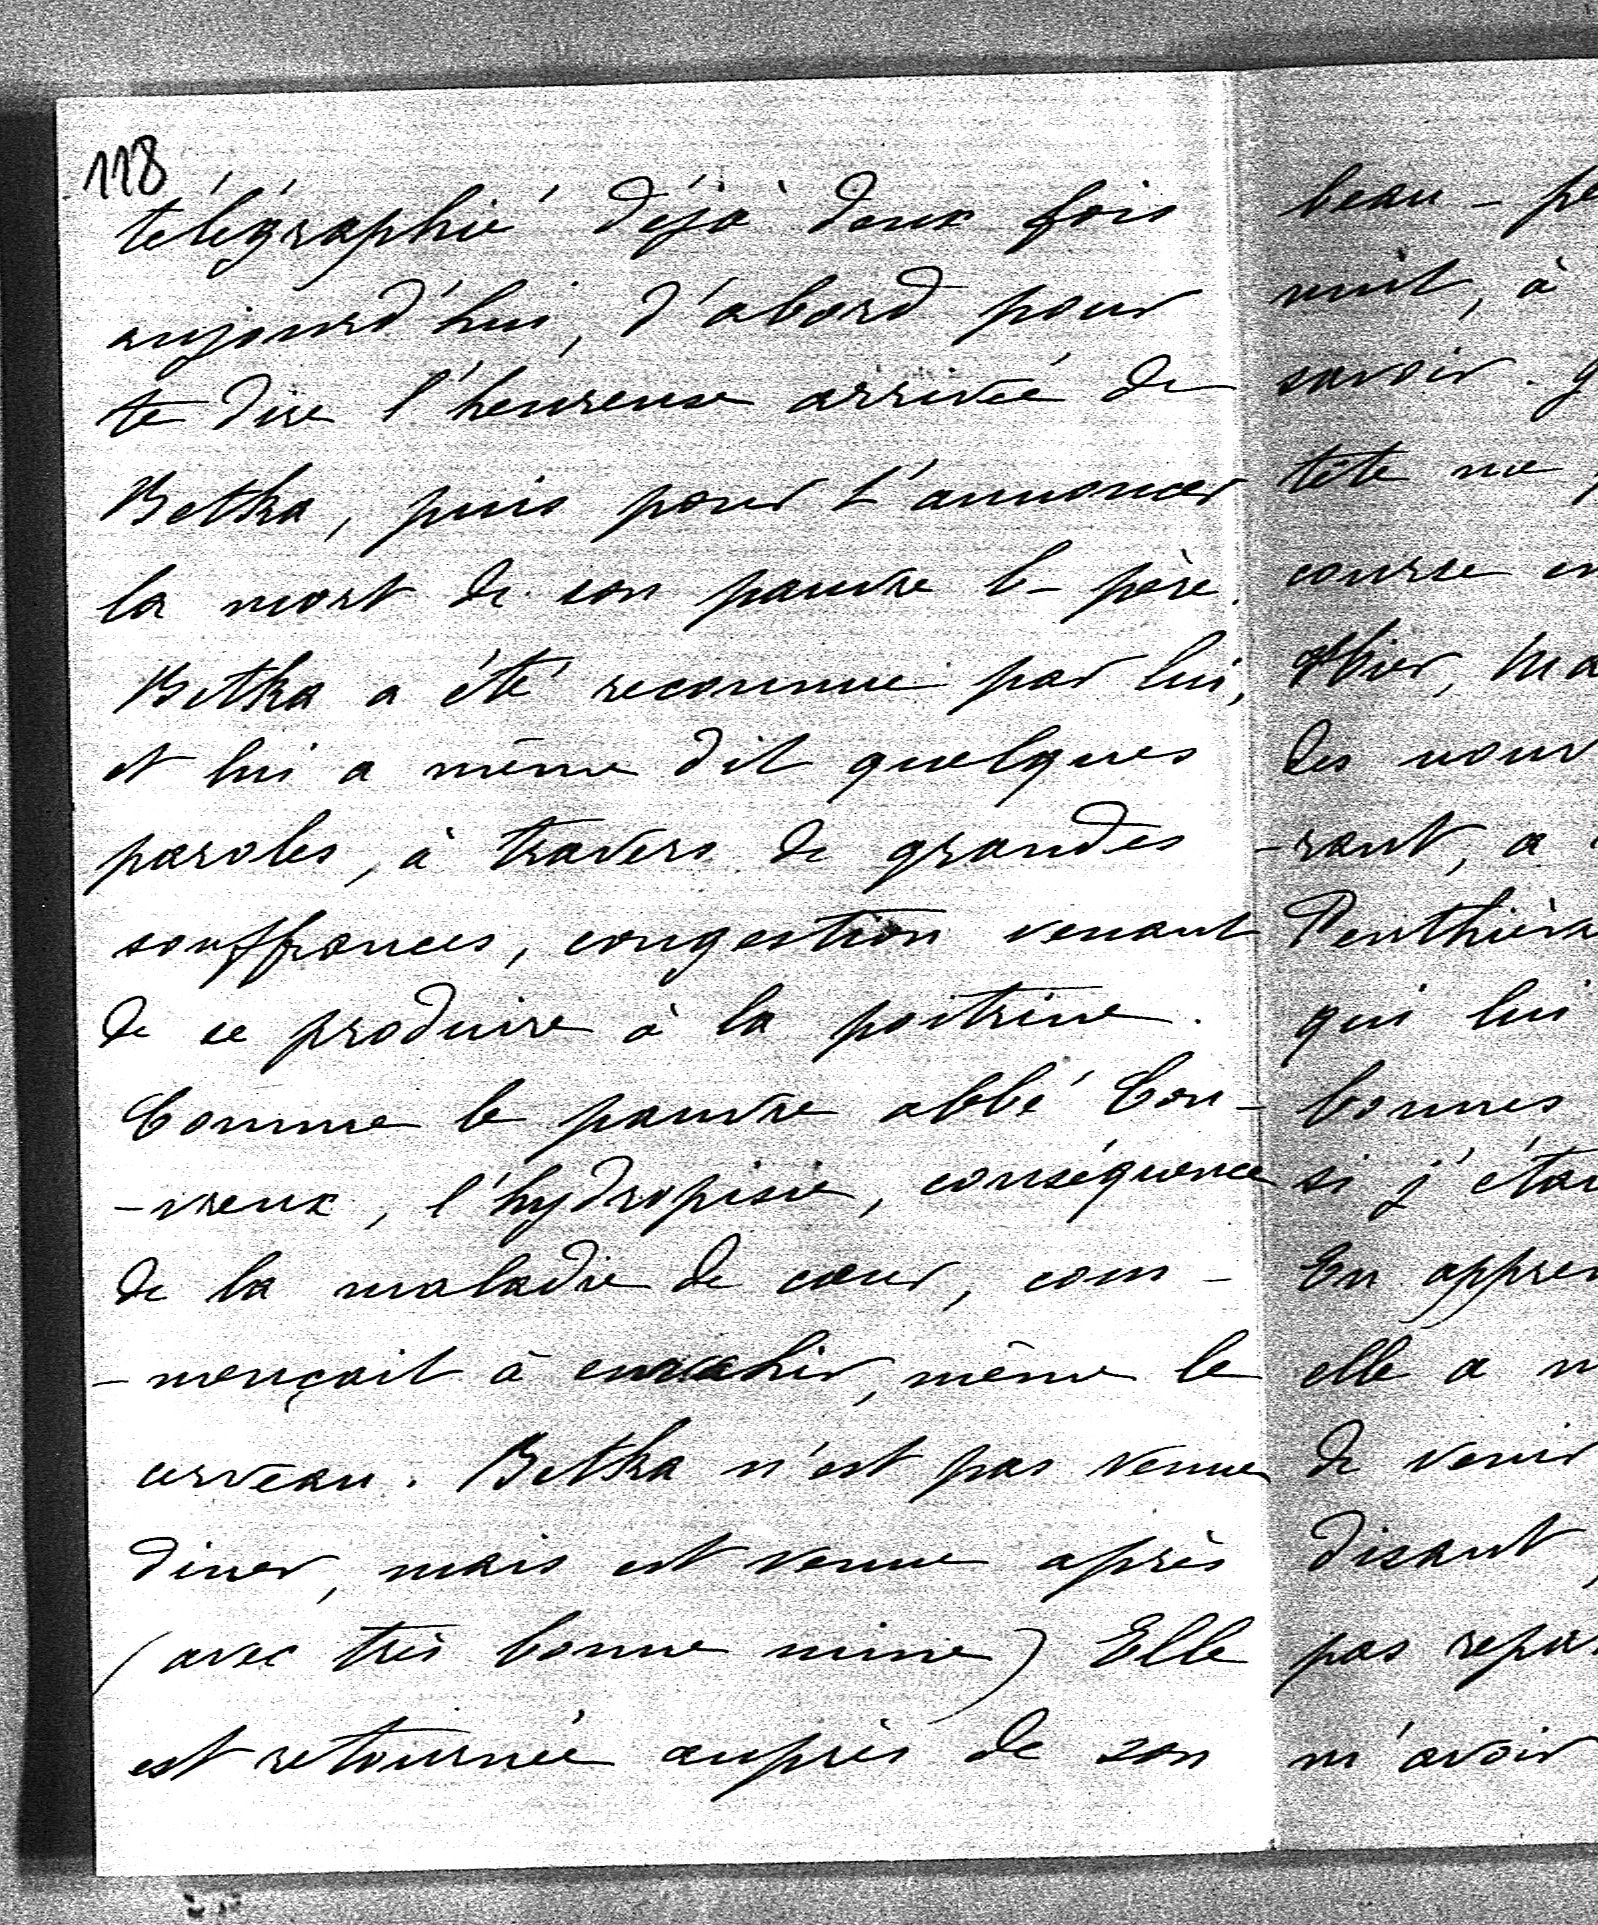 118
télégraphié déjà deux fois
aujourd'hui, d'abord pour
te dire l'heureuse arrivée de
Betka, puis pour t'annoncer
la mort de son pauvre b-père.
Betka a été reconnue par lui,
et lui a même dit quelques
paroles, à travers de grandes
souffrances, congestion venant
de se produire à la poitrine.
Comme le pauvre abbé Con-
-vreux, l'hydropisie, conséquence
de la maladie de cœur, com-
-mençait à envahir, même le
cerveau. Betka n'est pas venue
diner, mais est venue après
(avec très bonne mine) Elle
est retournée auprès de son
beau-pè
nuit, à
savoir.
tête me
course en
Hier, Ma
des nouv
-rant, a
Penthièvr
qui lui
bonnes
si j'étai
En appren
elle a m
de venir
disant,
pas repar
m'avoir